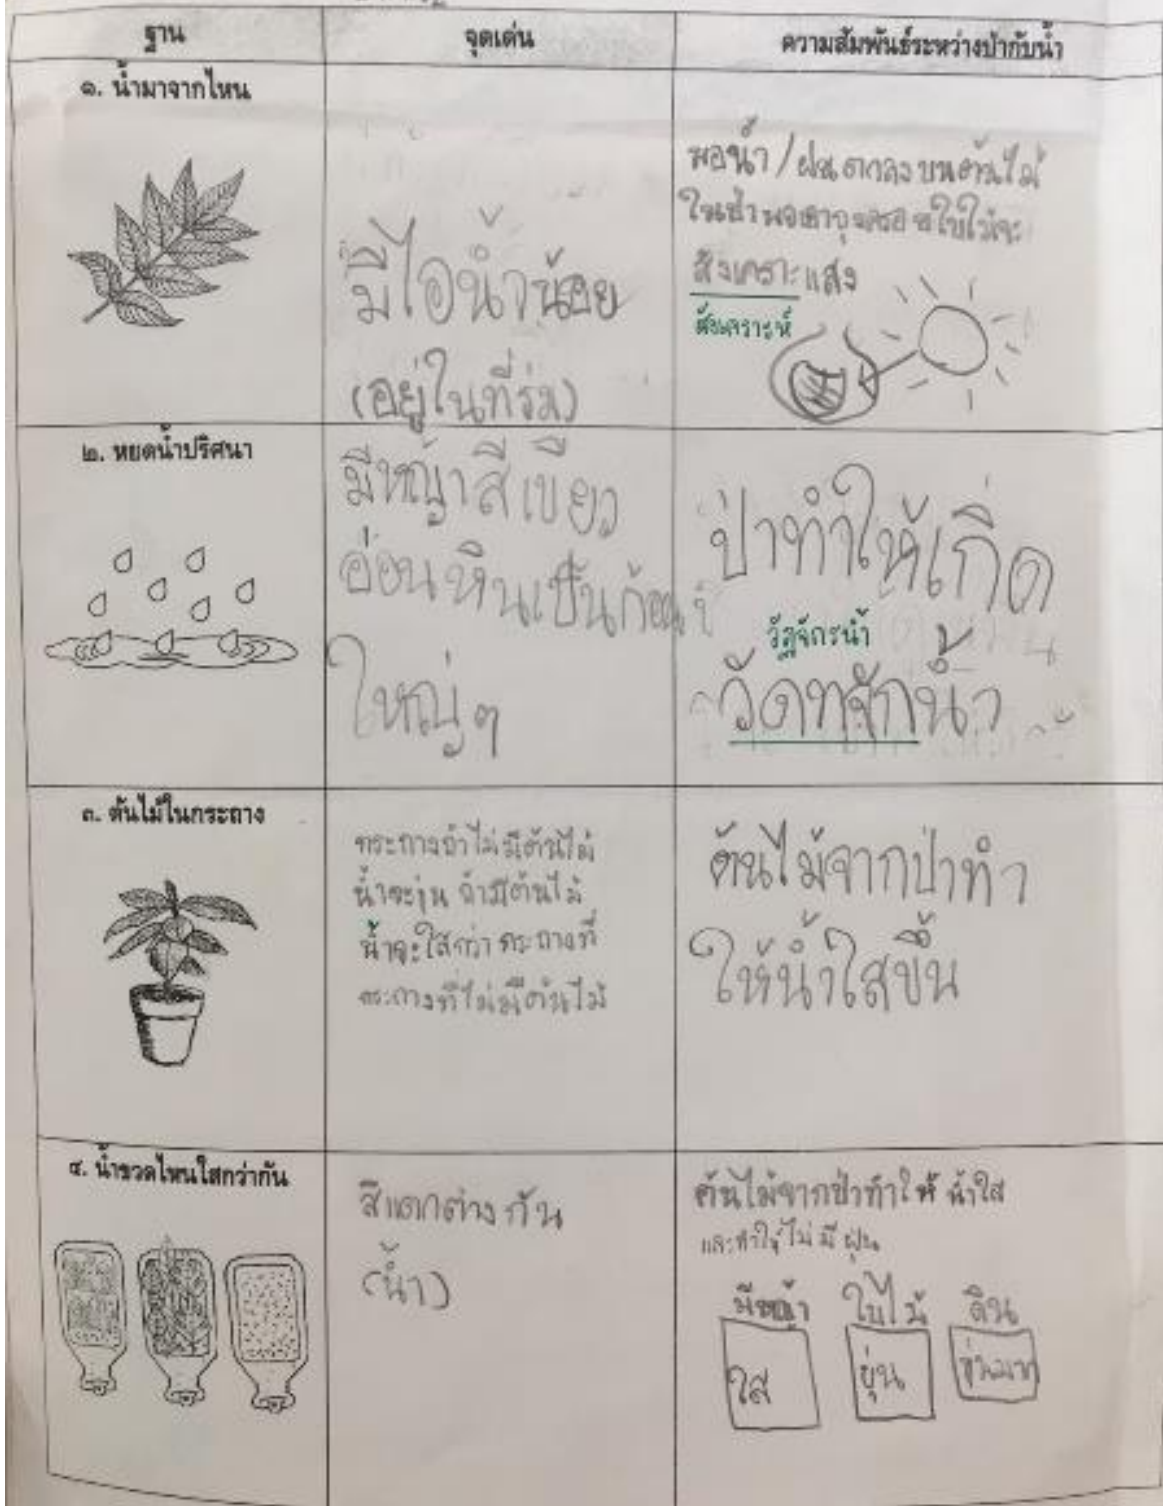 ฐาน
จุดเด่น
ความสัมพันธ์ระหว่างป่ากับน้ำ
๑. น้ำมาจากไหน
มีไอน้ำน้อย
(อยู่ในที่ร่ม)
พอน้ำ/ฝนตกลงบนต้นไม้
ในป่า
สังเคราะแสง
สังเคราะห์
๒. หยดน้ำปริศนา
มีหญ้าสีเขียว
อ่อนหินเป็นก้อน
ใหญ่ๆ
ป่าทำให้เกิ่ด
วัฏจักรน้ำ
วัดทจักน้ำ
๓. ต้นไม้ในกระถาง
กระถางถ้าไม่มีต้นไม้
น้ำจะขุ่น ถ้ามีต้นไม้
น้ำจะใสกว่า กระถางที่
กระถางที่ไม่มีต้นไม้
ต้นไม้จากป่าทำ
ให้น้ำใสขึ้น
๔. น้ำขวดไหนใสกว่ากัน
สีแตกต่างกัน
(น้ำ)
ต้นไม้จากป่าทำให้ น้ำใส
และทำให้ไม่มี ฝุ่น
มีหญ้า ใบไม้ ดิน
ใส ขุ่น ขุ่นมาก